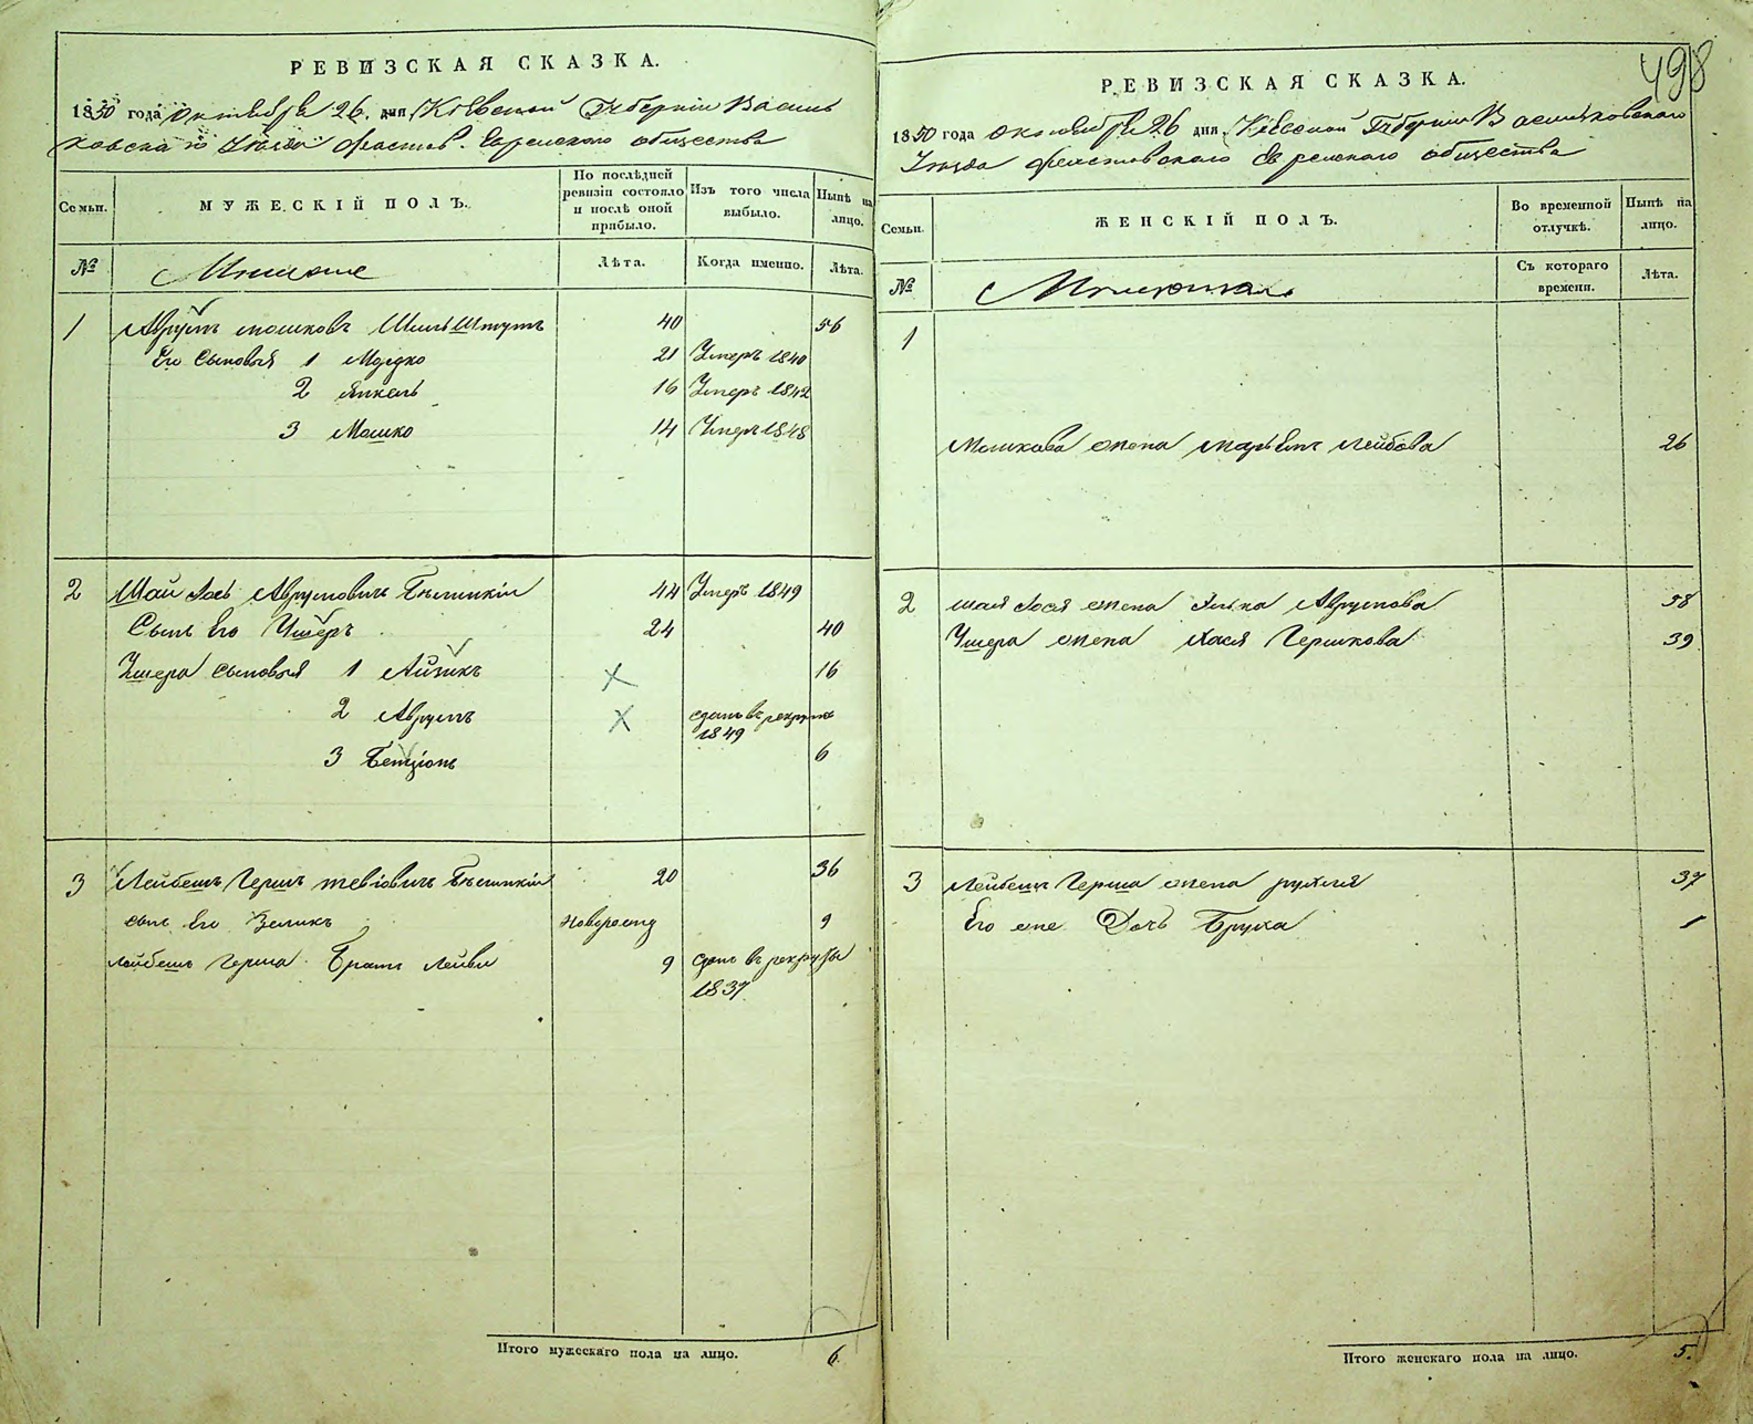 РЕВИЗСКАЯ СКАЗКА.
1850 года Октября 26. дня Кіевской Губерніи Василь
ковскаго Уѣзда Фастов. Еврейскаго общества
Семьи.
МУЖЕСКІЙ ПОЛЪ.
По послѣдней ревизіи состояло и послѣ оной прибыло.
Изъ того числа выбыло.
Нынѣ на лицо.
№
Лѣта.
Когда именно.
Лѣта.
1 Аврумъ Мошковъ 40 56
Его Сыновья 1 Мордко 21 Умеръ 1840
2 Янкель 16 Умеръ 1842
3 Мошко 14 Умеръ 1848
2 Шай Іось Аврумовичъ 44 Умеръ 1849
Сынъ Его Ушеръ 24 40
Ушера сыновья 1 Айзикъ 16
2 Аврумъ сданъ въ рекруты
1849
3 Бенціонъ 6
3 Лейбешъ Гершъ Тевіовичъ 20 36
сынъ Его Зеликъ Новорожд 9
Лейбешъ Герша Братъ Лейви 9 сданъ въ рекруты
1837
Итого мужескаго пола на лицо. 6.
498
РЕВИЗСКАЯ СКАЗКА.
1850 года октября 26 дня Кіевской Губерніи Васильковскаго
Уѣзда Фастовскаго Еврейскаго общества
Семьи.
ЖЕНСКІЙ ПОЛЪ.
Во временной отлучкѣ.
Нынѣ на лицо.
№
Съ котораго времени.
Лѣта.
1
Мошкова жена Марьемъ Лейбова 26
2 Шая Іося жена Аврумова 58
Ушера жена Хася Гершкова 39
3 Лейбешъ Герша жена Рухля 37
Его же Дочь Бруха 1
Итого женскаго пола на лицо. 5.